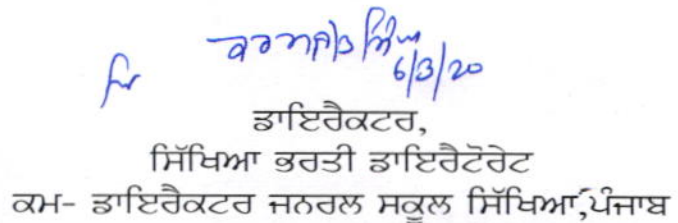 ਕਰਮਜੀਤ ਸਿੰਘ
6/3/20
ਡਾਇਰੈਕਟਰ,
ਸਿੱਖਿਆ ਭਰਤੀ ਡਾਇਰੈਟੋਰੇਟ
ਕਮ- ਡਾਇਰੈਕਟਰ ਜਨਰਲ ਸਕੂਲ ਸਿੱਖਿਆ,ਪੰਜਾਬ